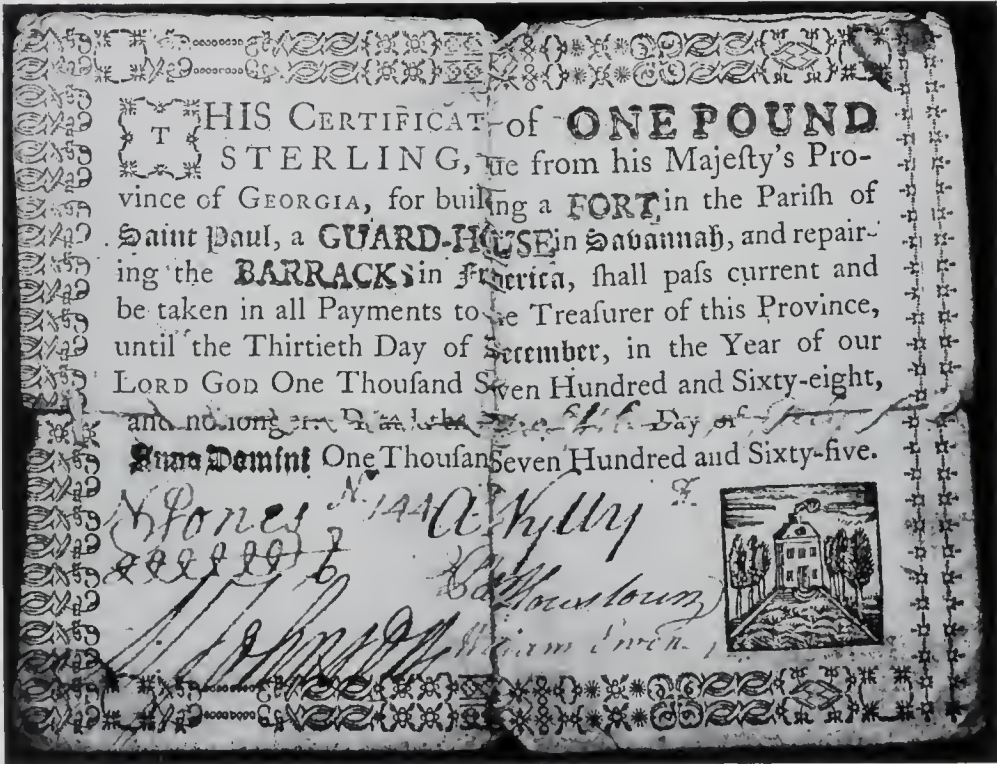 THIS CERTIFICAT of ONE POUND
STERLING, ue from his Majeſty's Pro-
vince of GEORGIA, for buil ing a FORT in the Pariſh of
Saint Paul, a GUARD-HOUSE in Savannah, and repair-
ing the BARRACKS in Frederica, ſhall paſs current and
be taken in all Payments to e Treaſurer of this Province,
until the Thirtieth Day of December, in the Year of our
LORD GOD One Thouſand Seven Hundred and Sixty-eight,
and no longer. Day of
Anno Domini One Thouſand Seven Hundred and Sixty-five.
N Jones No. 144